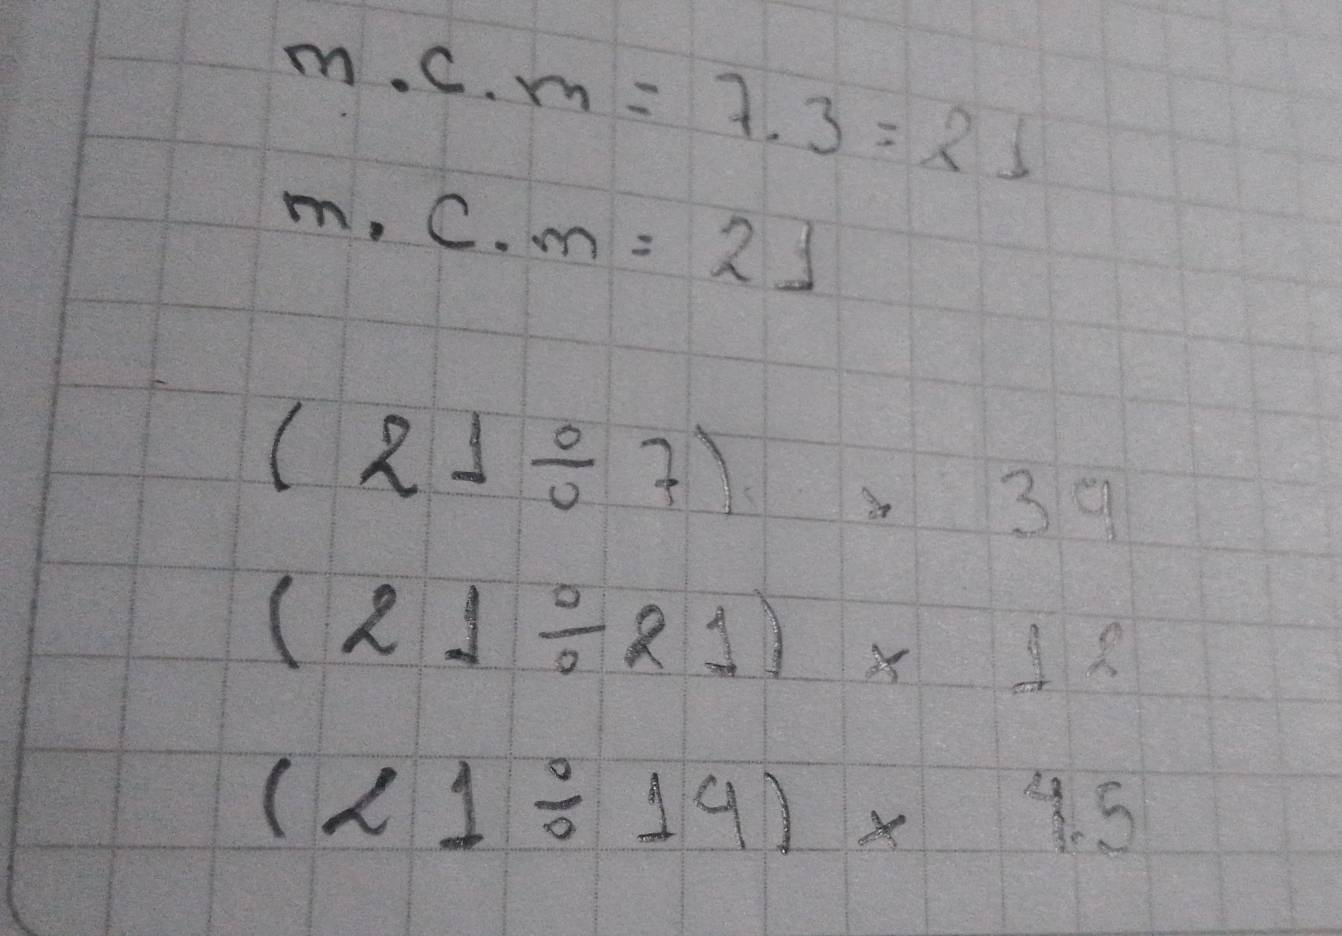 m.c.m = 7.3 = 21
m.c.m = 21
(21 ÷ 7) x 34
(21 ÷ 21) x 12
(21 ÷ 14) x 4.5